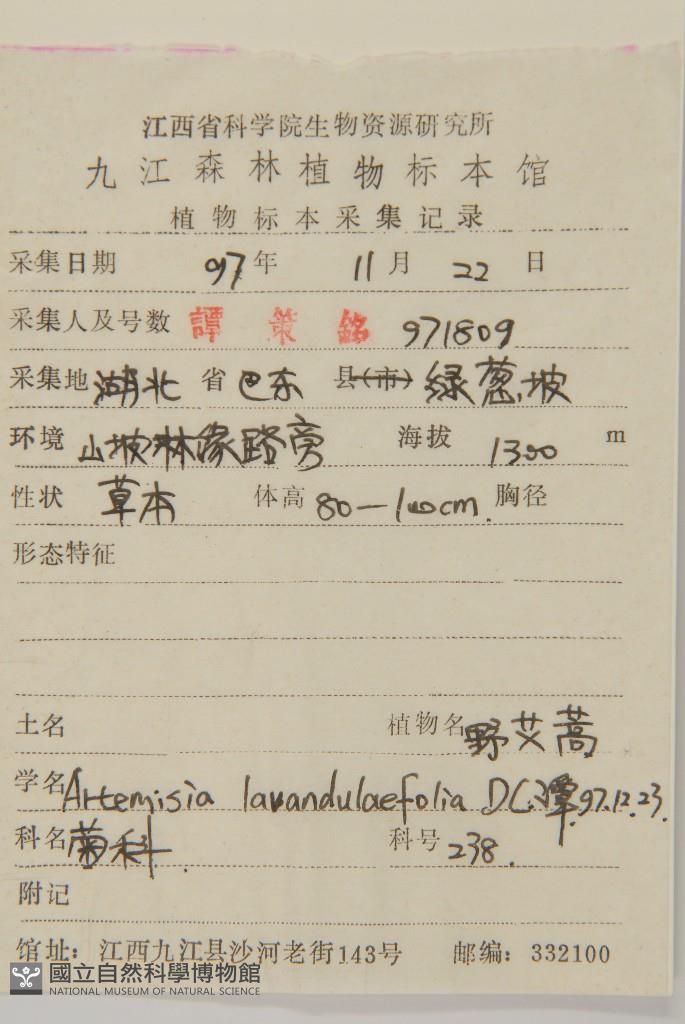 江西省科学院生物资源研究所
九江森林植物标本馆
植物标本采集记录
采集日期 97年 11月 22日
采集人及号数 譚策銘 971809
采集地 湖北 省 巴东 县(市) 绿葱坡
环境 山坡林缘路旁 海拔 1300 m
性状 草本 体高 80—100cm. 胸径
形态特征
土名 植物名 野艾蒿
学名 Artemisia lavandulaefolia DC. 谭97.12.23.
科名 菊科. 科号 238.
附记
馆址：江西九江县沙河老街143号 邮编：332100
國立自然科學博物館
NATIONAL MUSEUM OF NATURAL SCIENCE